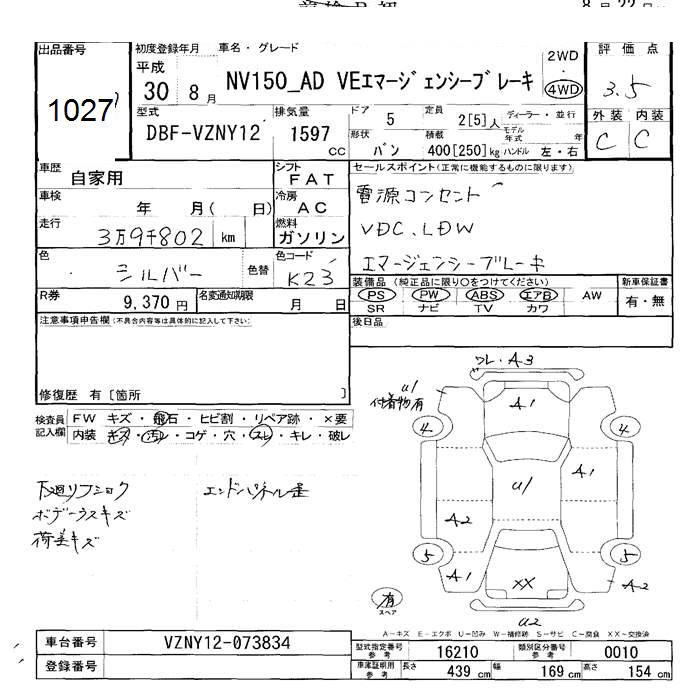 8月22
出品番号
1027
初度登録年月
車名・グレード
平成
30 8月
NV150_AD VEエマージェンシーブレーキ
2WD
4WD
評価点
3.5
型式
DBF-VZNY12
排気量
1597 cc
ドア 5
定員 2[5]人
ディーラー・並行
形状 バン
積載 400[250]kg
モデル年式 年
ハンドル 左・右
外装 内装
C C
車歴 自家用
シフト FAT
車検 年 月( 日)
冷房 AC
走行 3万9千802 km
燃料 ガソリン
色 シルバー
色替
色コード K23
R券 9,370円
名変通知期限 月 日
セールスポイント(正常に機能するものに限ります)
電源コンセント
VDC.LDW
エマージェンシーブレーキ
装備品(純正品に限り○をつけてください)
PS PW ABS エアB AW
SR ナビ TV カワ
新車保証書
有・無
後日品
注意事項申告欄(不具合内容等は具体的に記入して下さい)
修復歴 有[箇所 ]
検査員記入欄
FW キズ・飛石・ヒビ割・リペア跡・×要
内装 キズ・汚レ・コゲ・穴・スレ・キレ・破レ
下廻リフショク
ボデーウスキズ
荷差キズ
エンドパネル歪
ワレ・A3
U1
付着物有
A1
4
4
A1
U1
A2
5
5
A1
XX
A2
U2
有
スペア
A-キズ E-エクボ U-凹み W-補修跡 S-サビ C-腐食 XX-交換済
車台番号 VZNY12-073834
登録番号
型式指定番号参考 16210
類別区分番号参考 0010
車庫証明用参考 長さ 439cm 幅 169cm 高さ 154cm